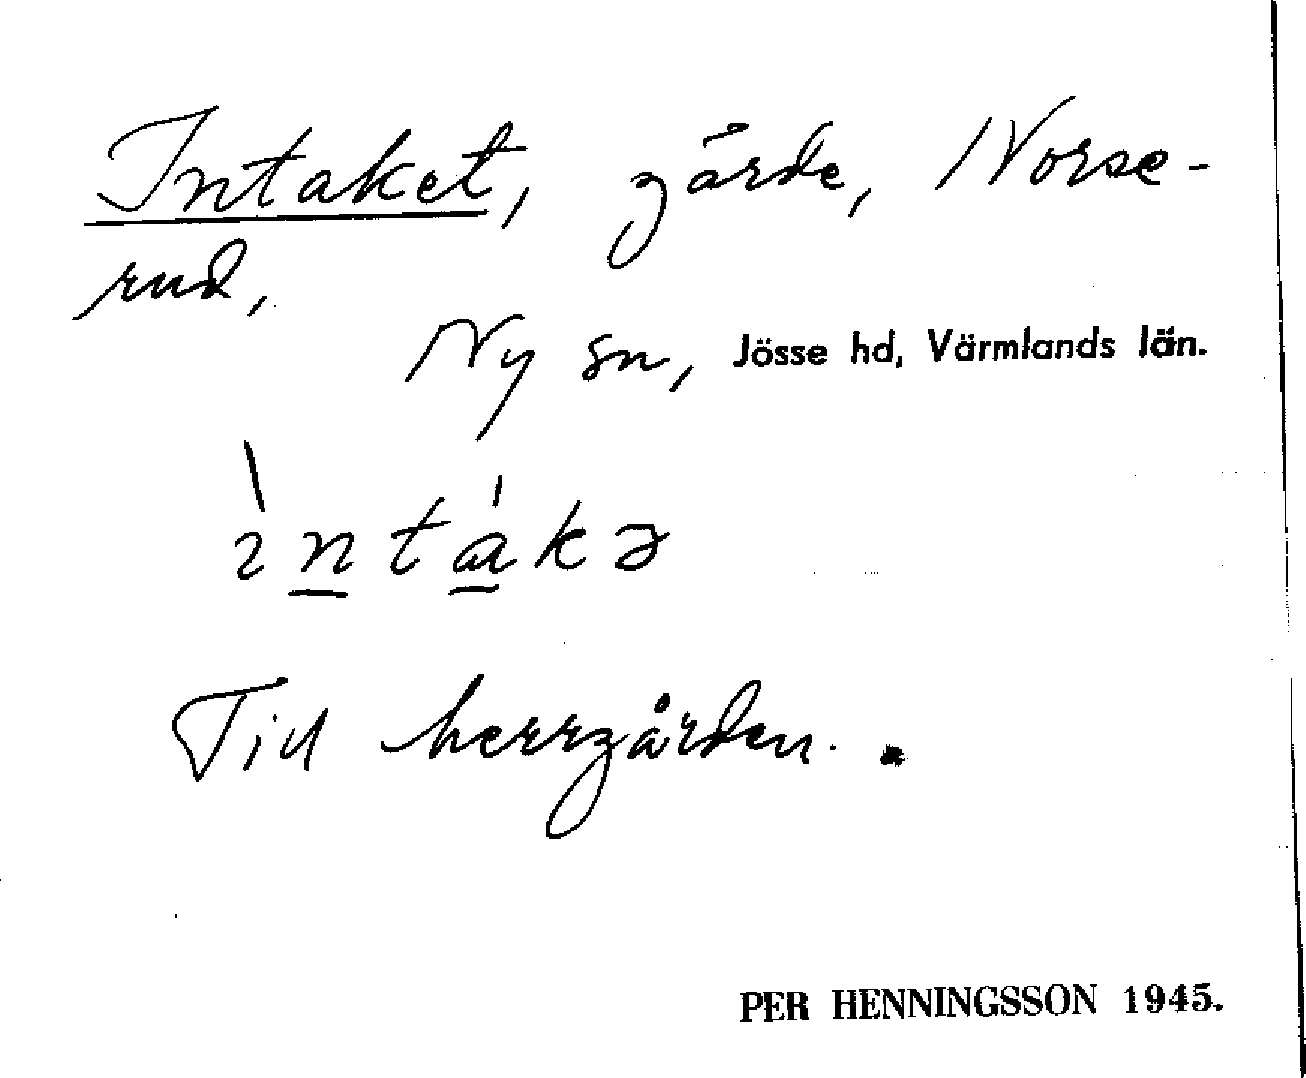 Intaket, gärde, Norse-
rud,
Ny sn, Jösse hd, Värmlands län.
ìntákə
Till herrgården.
PER HENNINGSSON 1945.